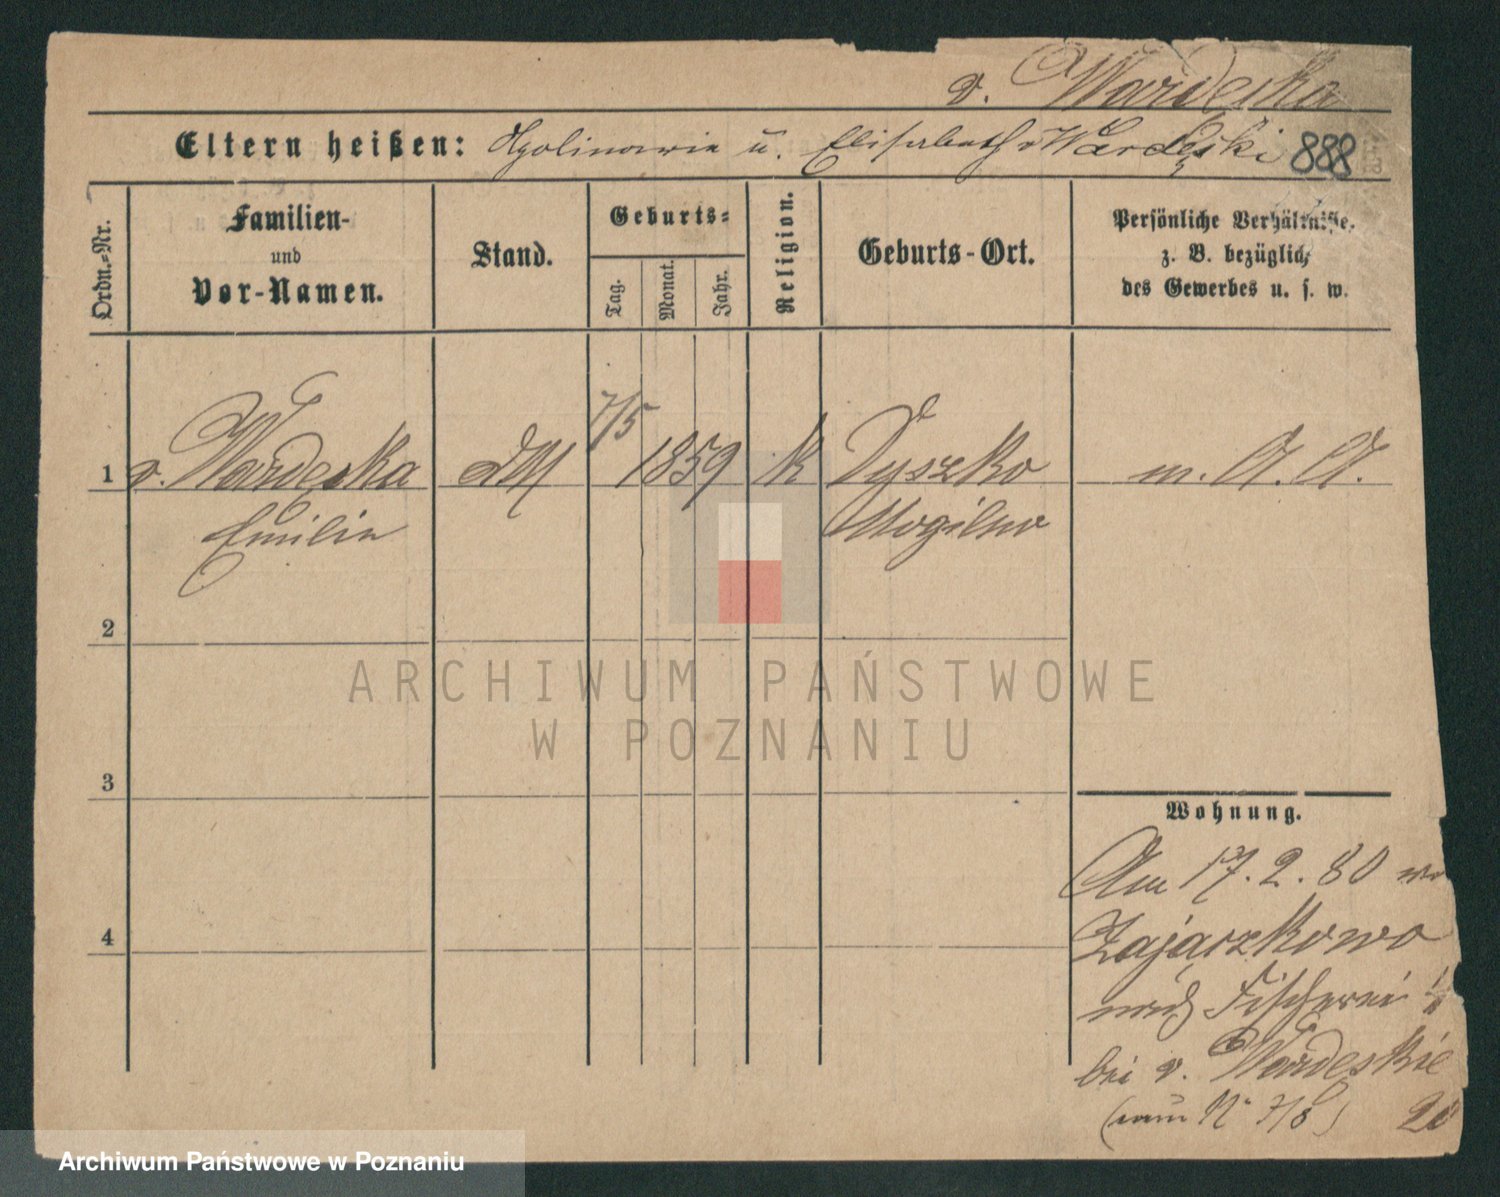 v. Wardęska
Eltern heißen: Apolinarie u. Elisabeth v Wardęski 888
Ordn.-Nr.
Familien-
und
Vor-Namen.
Stand.
Geburts-
Tag.
Monat.
Jahr.
Religion.
Geburts-Ort.
Persönliche Verhältnisse.
z. B. bezüglich
des Gewerbes u. s. w.
1 v. Wardęska 7/5 1859 k Dyszko m. A. A.
Emilie Mogilno
2
3
4
Wohnung.
Am 17.2.80 von
Zajączkowo
nach Fischerei
bei v. Wardęskie
(neue No 7/8)
ARCHIWUM PAŃSTWOWE
W POZNANIU
Archiwum Państwowe w Poznaniu